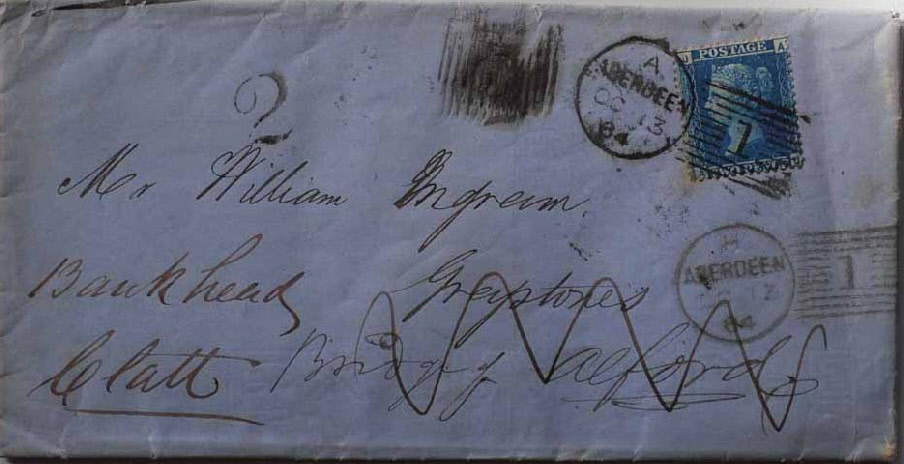 J POSTAGE A
A
ABERDEEN
OC 13
84
1
2
Mr William Ingram
H
ABERDEEN
OC 13
84
1
Bankhead Greystones
Clatt Bridge of Alford